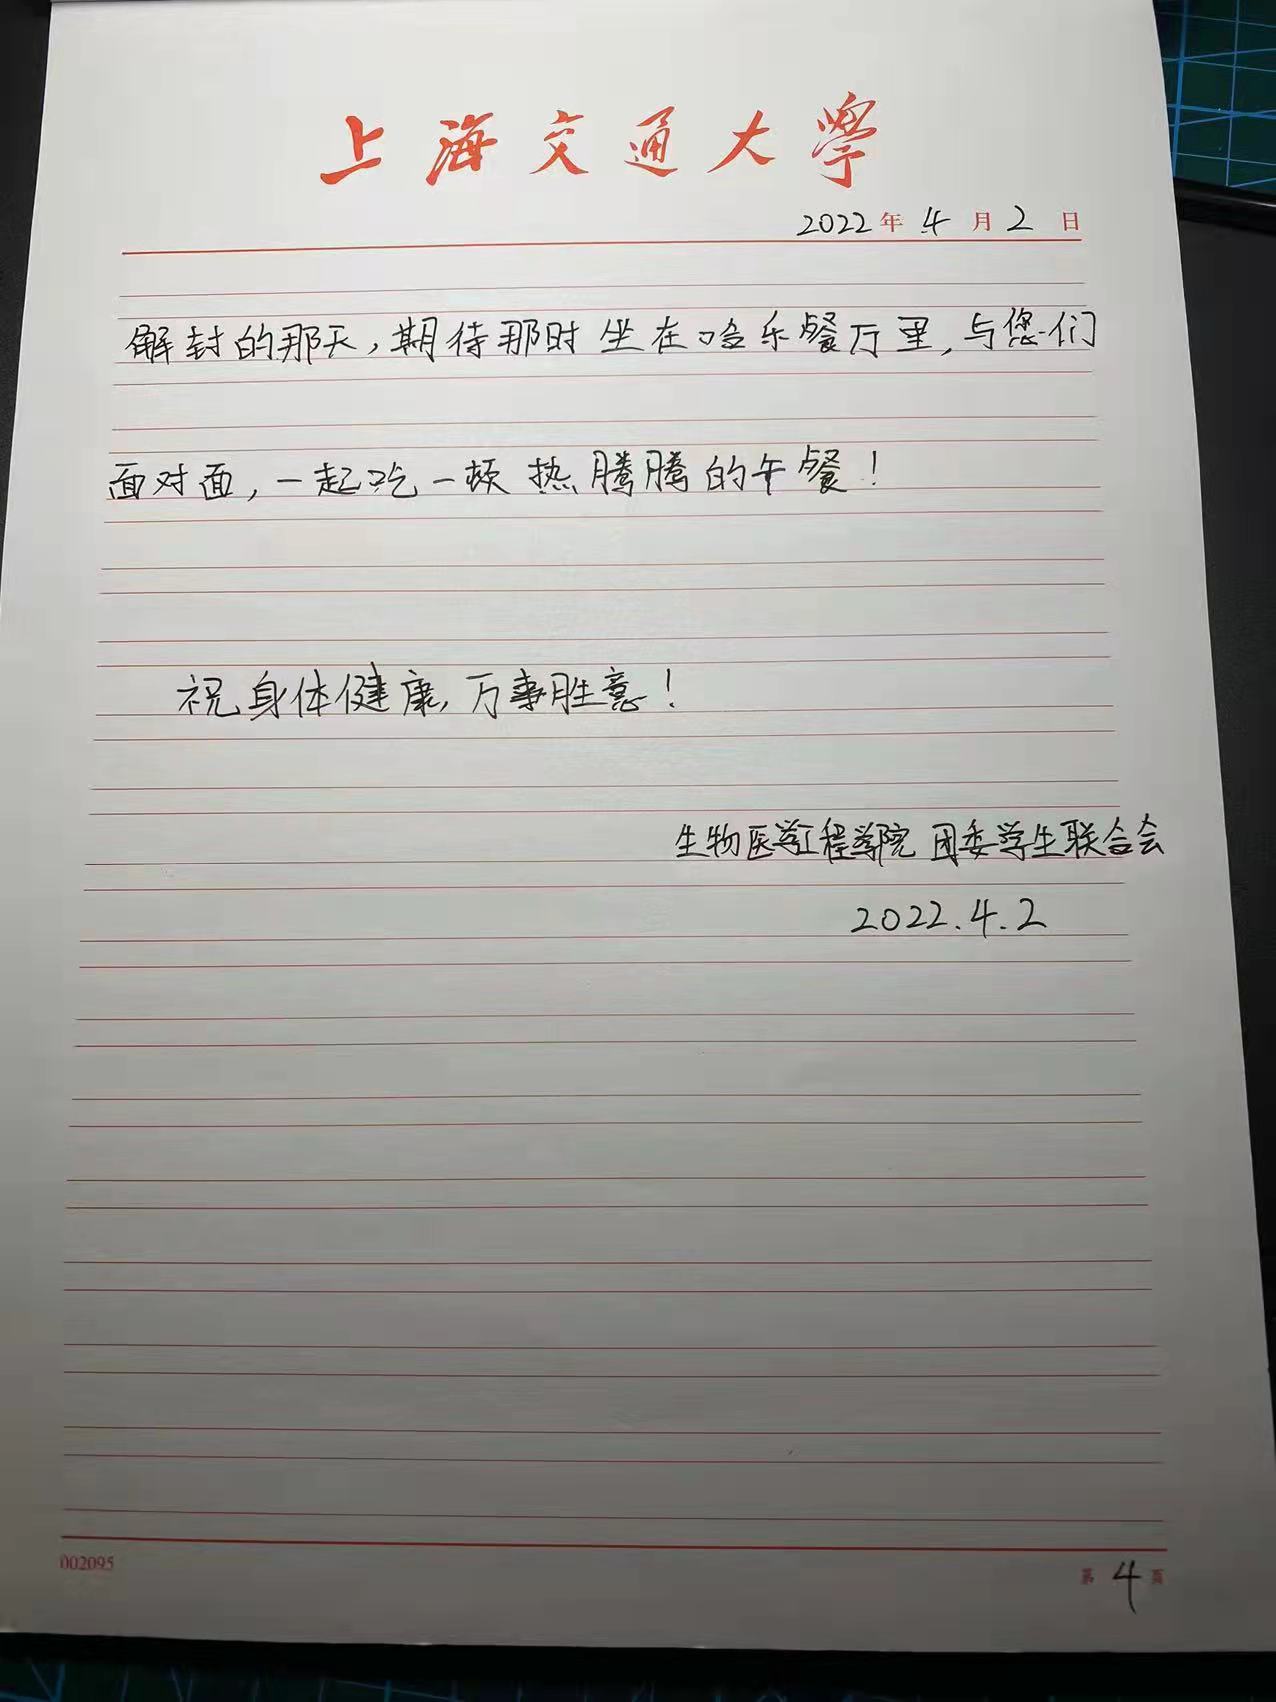 上海交通大学
2022年4月2日
解封的那天，期待那时坐在哈乐餐厅里，与您们
面对面，一起吃一顿热腾腾的午餐！
祝身体健康，万事胜意！
生物医学工程学院 团委学生联合会
2022.4.2
002095
第4页